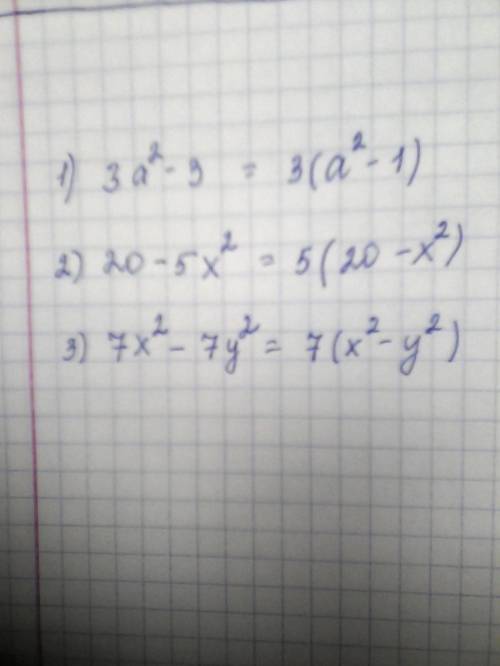 1) 3a² - 9 = 3(a² - 1)
2) 20 - 5x² = 5(20 - x²)
3) 7x² - 7y² = 7(x² - y²)